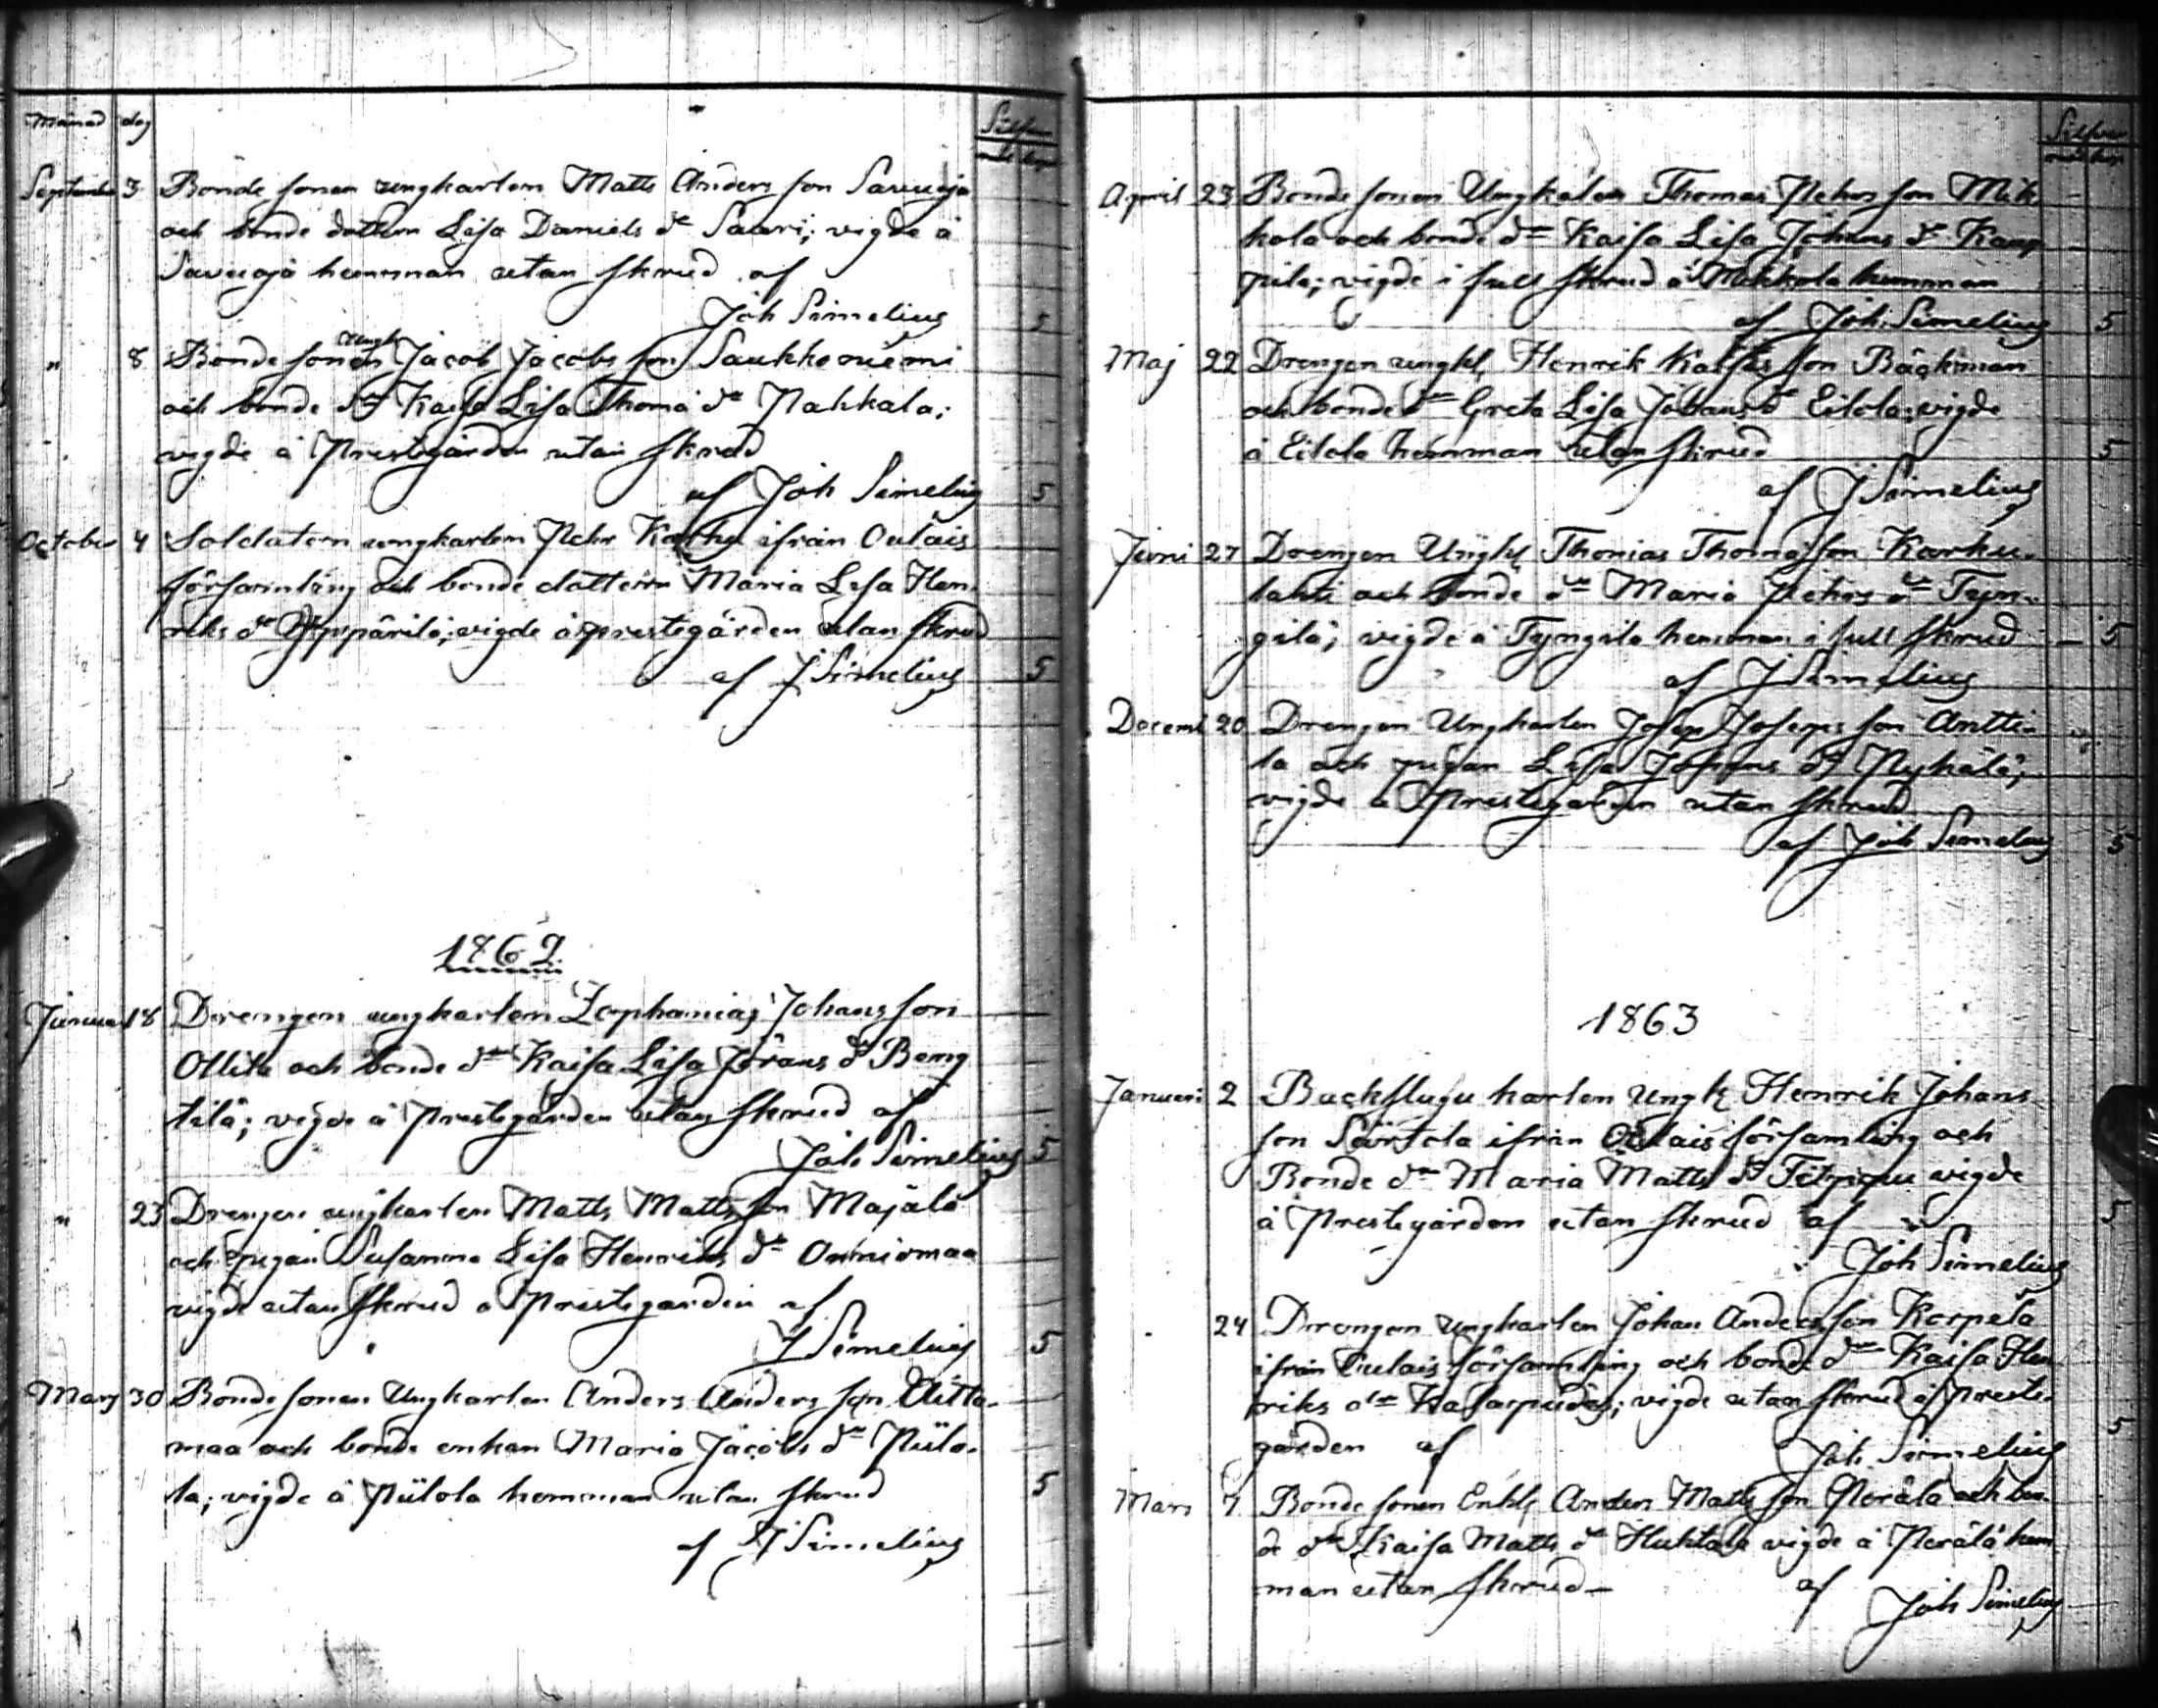 Månad dag Silfver
September 3 Bonde sonen ungkarlen Matts Anders son Savuoja
och bonde dottern Lisa Daniels dr Saari; vigde å
Savuoja hemman utan skrud af
Joh Simelius 5
" 8 Bonde sonen ungk Jacob Jacobs son Saukko niemi
och bonde dr Kaisa Lisa Thomä dr Pahkala;
vigde å Prestegården utan skrud
af Joh Simelius 5
October 4 Soldaten ungkarlen Pehr Karhu ifrån Oulais
församling och bonde dottern Maria Lisa Hen
riks dr vigde å prestegården utan skrud
af J Simelius 5
1862
Januar 18 Drengen ungkarlen Zephanias Johans son
Ollila och bonde dr Kaisa Lisa Görans dr Beng
tilä; vigde å Prestegården utan skrud af
Joh Simelius 5
" 23 Drengen ungkarlen Matts Matts son Majala
och pigan Susanna Lisa Henriks dr
vigde utan skrud å Prestegården af
J Simelius 5
Mars 30 Bonde sonen Ungkarlen Anders Anders son Aitto-
maa och bonde enkan Maria Jacobs dr Piilo-
la; vigde å Piilola hemman utan skrud 5
af J Simelius
Silfver
April 23 Bonde sonen Ungkarlen Thomas Pehrs son Mik
kola och bonde dr Kaisa Lisa Johans dr Kaup
pila; vigde i full skrud å Mikkola hemman
af Joh. Simelius 5
Maj 22 Drengen ungkl Henrik son Bäckman
och bonde dr Greta Lisa Johans dr Eilola; vigde
å Eilola hemman utan skrud 5
af J Simelius
Juni 27 Drengen Ungkl Thomas Thomä son Karhu-
lahti och bonde dr Maria Pehrs dr Tyn-
gilä; vigde å Tyngilä hemman i full skrud 5
af J Simelius
Decemb 20 Drengen Ungkarlen Josep Joseps son Antti-
la och pigan Lisa Johans dr Pyhälä;
vigde å Prestegården utan skrud
af Joh Simelius 5
1863
Januari 2 Backstugu karlen Ungk Henrik Johans
son Särtola ifrån Oulais församling och
Bonde dr Maria Matts dr Filppu vigde
å Prestegården utan skrud af 5
Joh Simelius
24 Drengen ungkarlen Johan Anders son Korpela
ifrån Oulais församling och bonde dr Kaisa Hen
riks dr Haapudas; vigde utan skrud å Preste-
gården af Joh. Simelius 5
Mars 7 Bonde sonen Enkl Anders Matts son Perälä och bon-
de dr Kaisa Matts dr Huhtala vigde å Perälä hem
man utan skrud – af
Joh Simelius